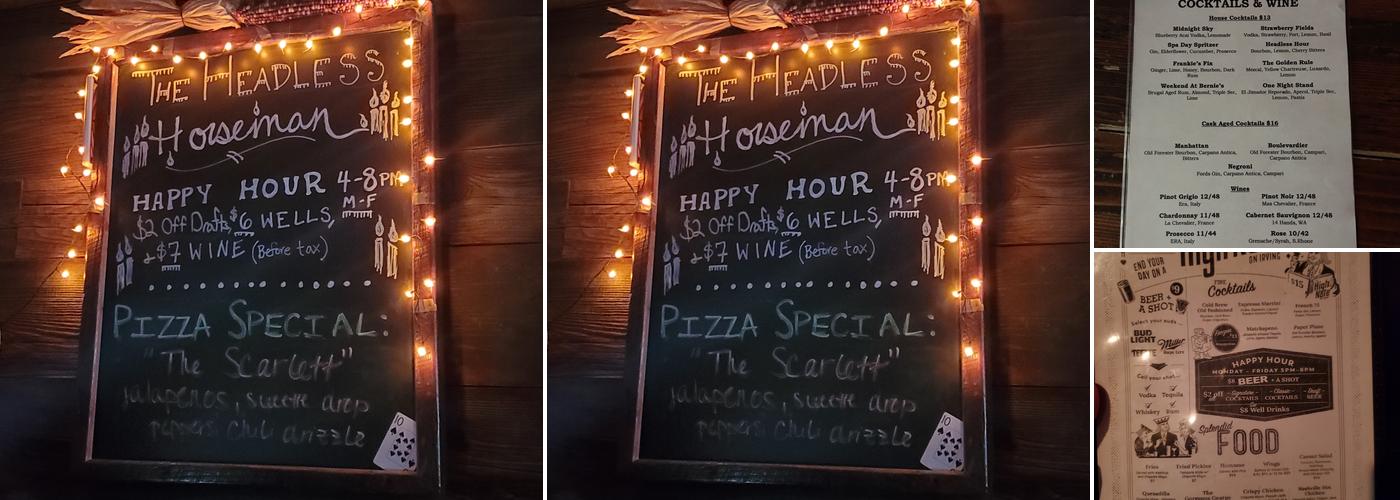 THE HEADLESS
Horseman
HAPPY HOUR 4-8PM
M-F
$2 Off Drafts, $6 WELLS,
& $7 WINE (Before tax)
PIZZA SPECIAL:
"The Scarlett"
jalapenos, sweet drop
peppers chili drizzle
10
THE HEADLESS
Horseman
HAPPY HOUR 4-8PM
M-F
$2 Off Drafts, $6 WELLS,
& $7 WINE (Before tax)
PIZZA SPECIAL:
"The Scarlett"
jalapenos, sweet drop
peppers chili drizzle
10
COCKTAILS & WINE
House Cocktails $13
Midnight Sky
Blueberry Acai Vodka, Lemonade
Strawberry Fields
Vodka, Strawberry, Port, Lemon, Basil
Spa Day Spritzer
Gin, Elderflower, Cucumber, Prosecco
Headless Hour
Bourbon, Lemon, Cherry Bitters
Frankie's Fix
Ginger, Lime, Honey, Bourbon, Dark
Rum
The Golden Rule
Mezcal, Yellow Chartreuse, Luxardo,
Lemon
Weekend At Bernie's
Brugal Aged Rum, Almond, Triple Sec,
Lime
One Night Stand
El Jimador Reposado, Aperol, Triple Sec,
Lemon, Pastis
Cask Aged Cocktails $16
Manhattan
Old Forester Bourbon, Carpano Antica,
Bitters
Boulevardier
Old Forester Bourbon, Campari,
Carpano Antica
Negroni
Fords Gin, Carpano Antica, Campari
Wines
Pinot Grigio 12/48
Era, Italy
Pinot Noir 12/48
Mas Chevalier, France
Chardonnay 11/48
La Chevalier, France
Cabernet Sauvignon 12/48
14 Hands, WA
Prosecco 11/44
ERA, Italy
Rose 10/42
Grenache/Syrah, S.Rhone
END YOUR
DAY ON A
ON IRVING
$15
High
Note
BEER +
A SHOT
$9
Select your suds
BUD
LIGHT
Miller
High Life
Call your shot
Vodka
Tequila
Whiskey
Rum
FINE
Cocktails
Cold Brew
Old Fashioned
Espresso Martini
French 75
Matchapeno
Paper Plane
HAPPY HOUR
MONDAY - FRIDAY 5PM-8PM
$8 BEER + A SHOT
$2 off
Signature
COCKTAILS
Classic
COCKTAILS
Draft
BEER
$8 Well Drinks
Splendid
FOOD
Fries
Fried Pickles
Hummus
Wings
Caesar Salad
Quesadilla
Crispy Chicken